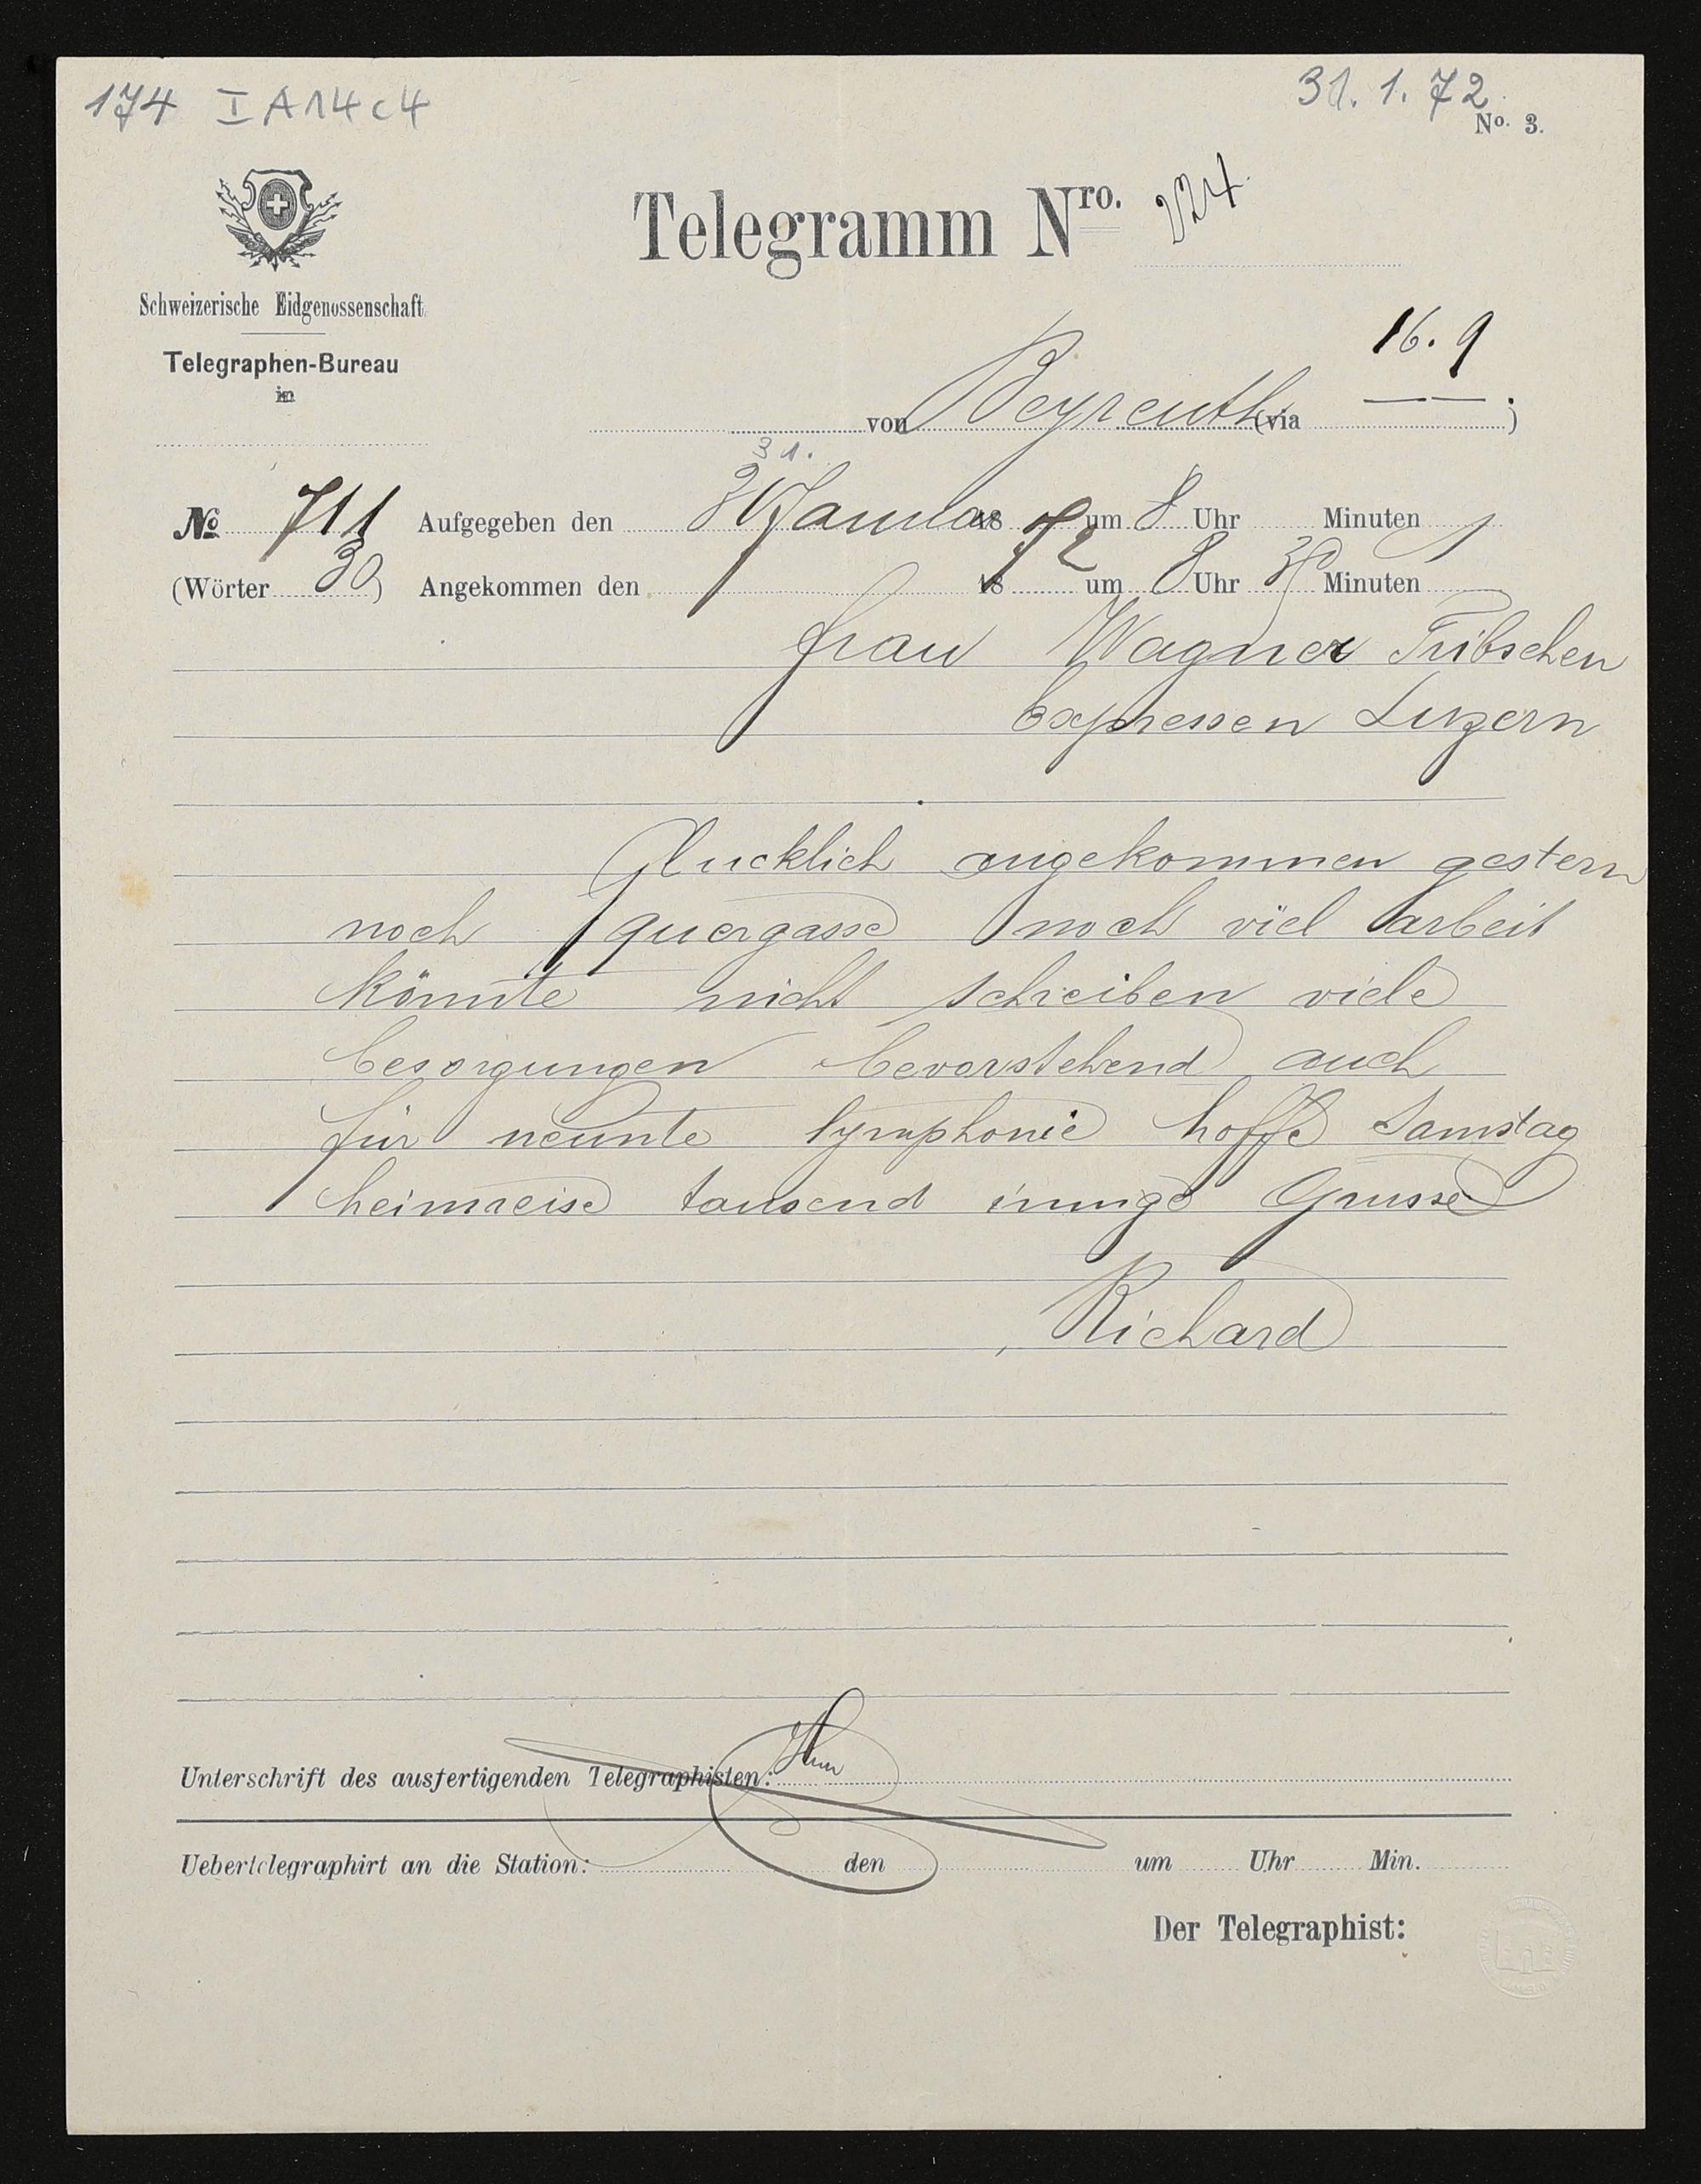 174 I A 14 c 4
31. 1. 72
No. 3.
Telegramm Nro.
Schweizerische Eidgenossenschaft
Telegraphen-Bureau
in
16. 9
von Beyreuth (via )
31.
No 711 Aufgegeben den 31 Januar 18 72 um 8 Uhr Minuten
(Wörter 30) Angekommen den 18 um 8 Uhr 30 Minuten
frau Wagner Tribschen
Expressen Luzern
Glucklich angekommen gestern
noch quergasse noch viel arbeit
könnte nicht schreiben viele
besorgungen bevorstehend auch
für neunte symphonie hoffe Samstag
heimreise tausend innige Grusse
Richard
Unterschrift des ausfertigenden Telegraphisten:
Uebertelegraphirt an die Station: den um Uhr Min.
Der Telegraphist: